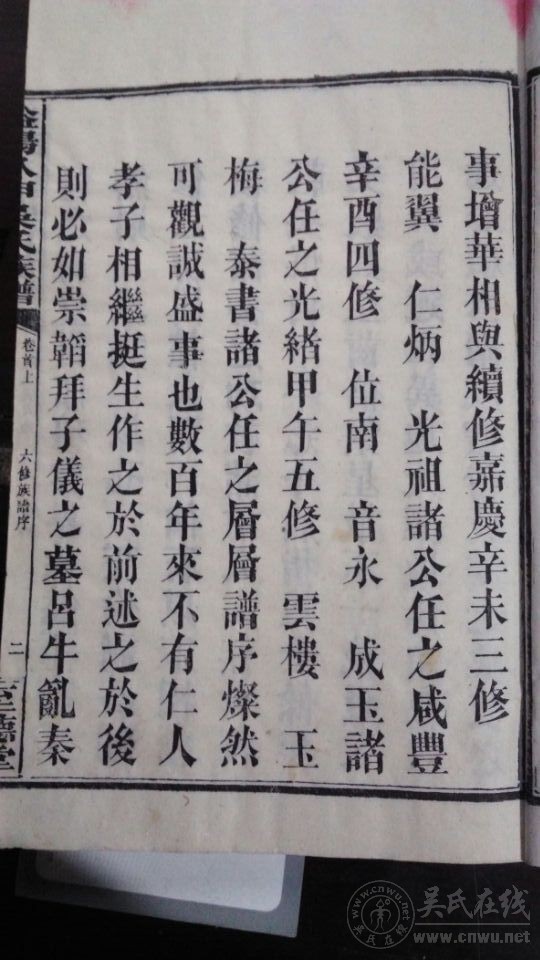 事增華相與續修嘉慶辛未三修
能翼　仁炳　光祖諸公任之咸豐
辛酉四修　位南　音永　成玉諸
公任之光緒甲午五修　雲樓　玉
梅　泰書諸公任之層層譜序燦然
可觀誠盛事也數百年來不有仁人
孝子相繼挺生作之於前述之於後
則必如崇韜拜子儀之墓呂牛亂秦
吳氏族譜
卷首上
六修族譜序
二
吴氏在线
www.cnwu.net